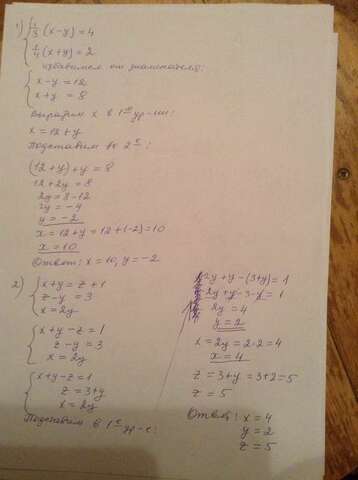 1) { 1/3 (x-y) = 4
1/4 (x+y) = 2
избавимся от знаменателя:
{ x - y = 12
x + y = 8
Выразим x в 1ом ур-нии:
x = 12 + y
Подставим во 2е:
(12 + y) + y = 8
12 + 2y = 8
2y = 8 - 12
2y = -4
y = -2
x = 12 + y = 12 + (-2) = 10
x = 10
Ответ: x = 10, y = -2
2) { x + y = z + 1
z - y = 3
x = 2y
{ x + y - z = 1
z - y = 3
x = 2y
{ x + y - z = 1
z = 3 + y
x = 2y
Подставим в 1е ур-е:
2y + y - (3 + y) = 1
2y + y - 3 - y = 1
2y = 4
y = 2
x = 2y = 2·2 = 4
x = 4
z = 3 + y = 3 + 2 = 5
z = 5
Ответ: x = 4
y = 2
z = 5